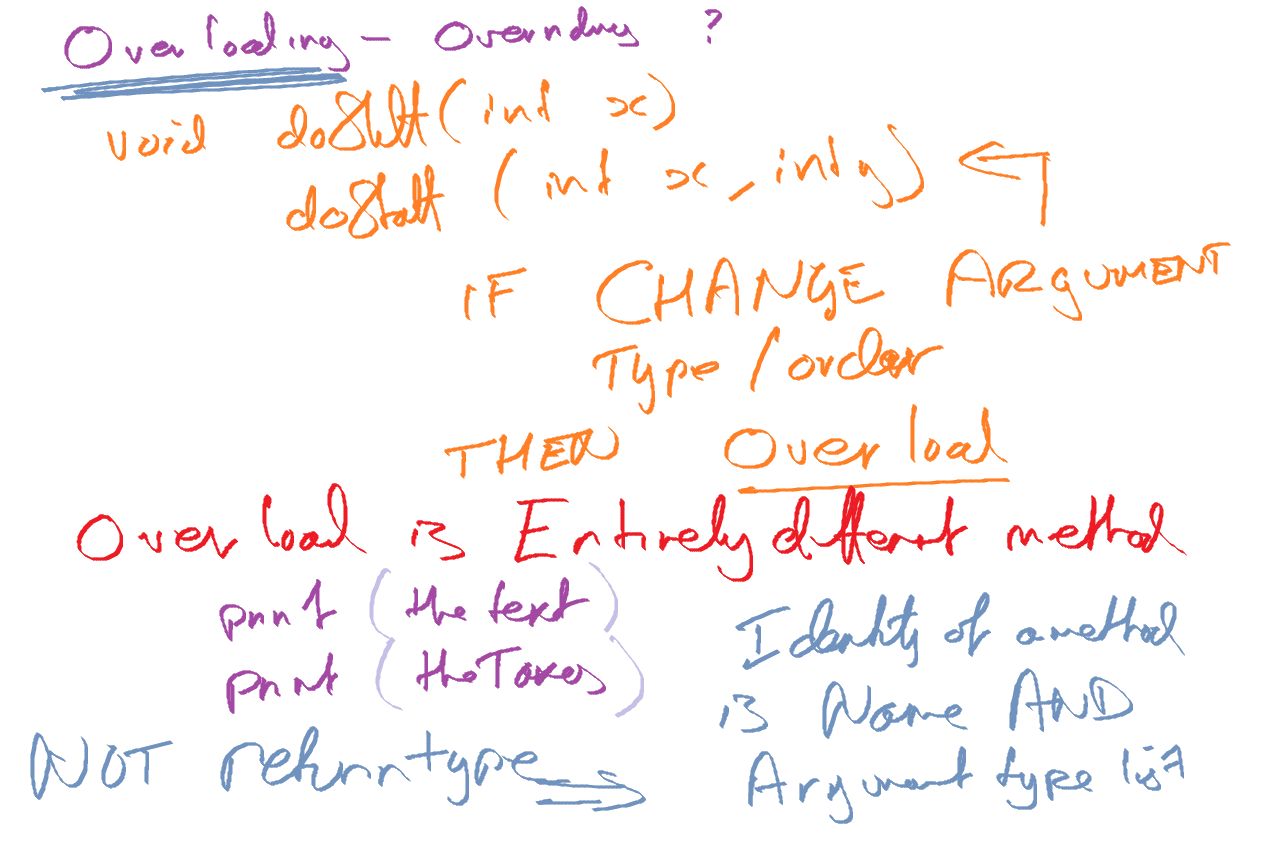 Overloading - Overriding ?
void doStuff(int x)
doStuff (int x, int y)
IF CHANGE ARGUMENT
Type / order
THEN Overload
Overload is Entirely different method
print (the text)
print (the Taxes)
Identity of a method
is Name AND
NOT return type
Argument type list